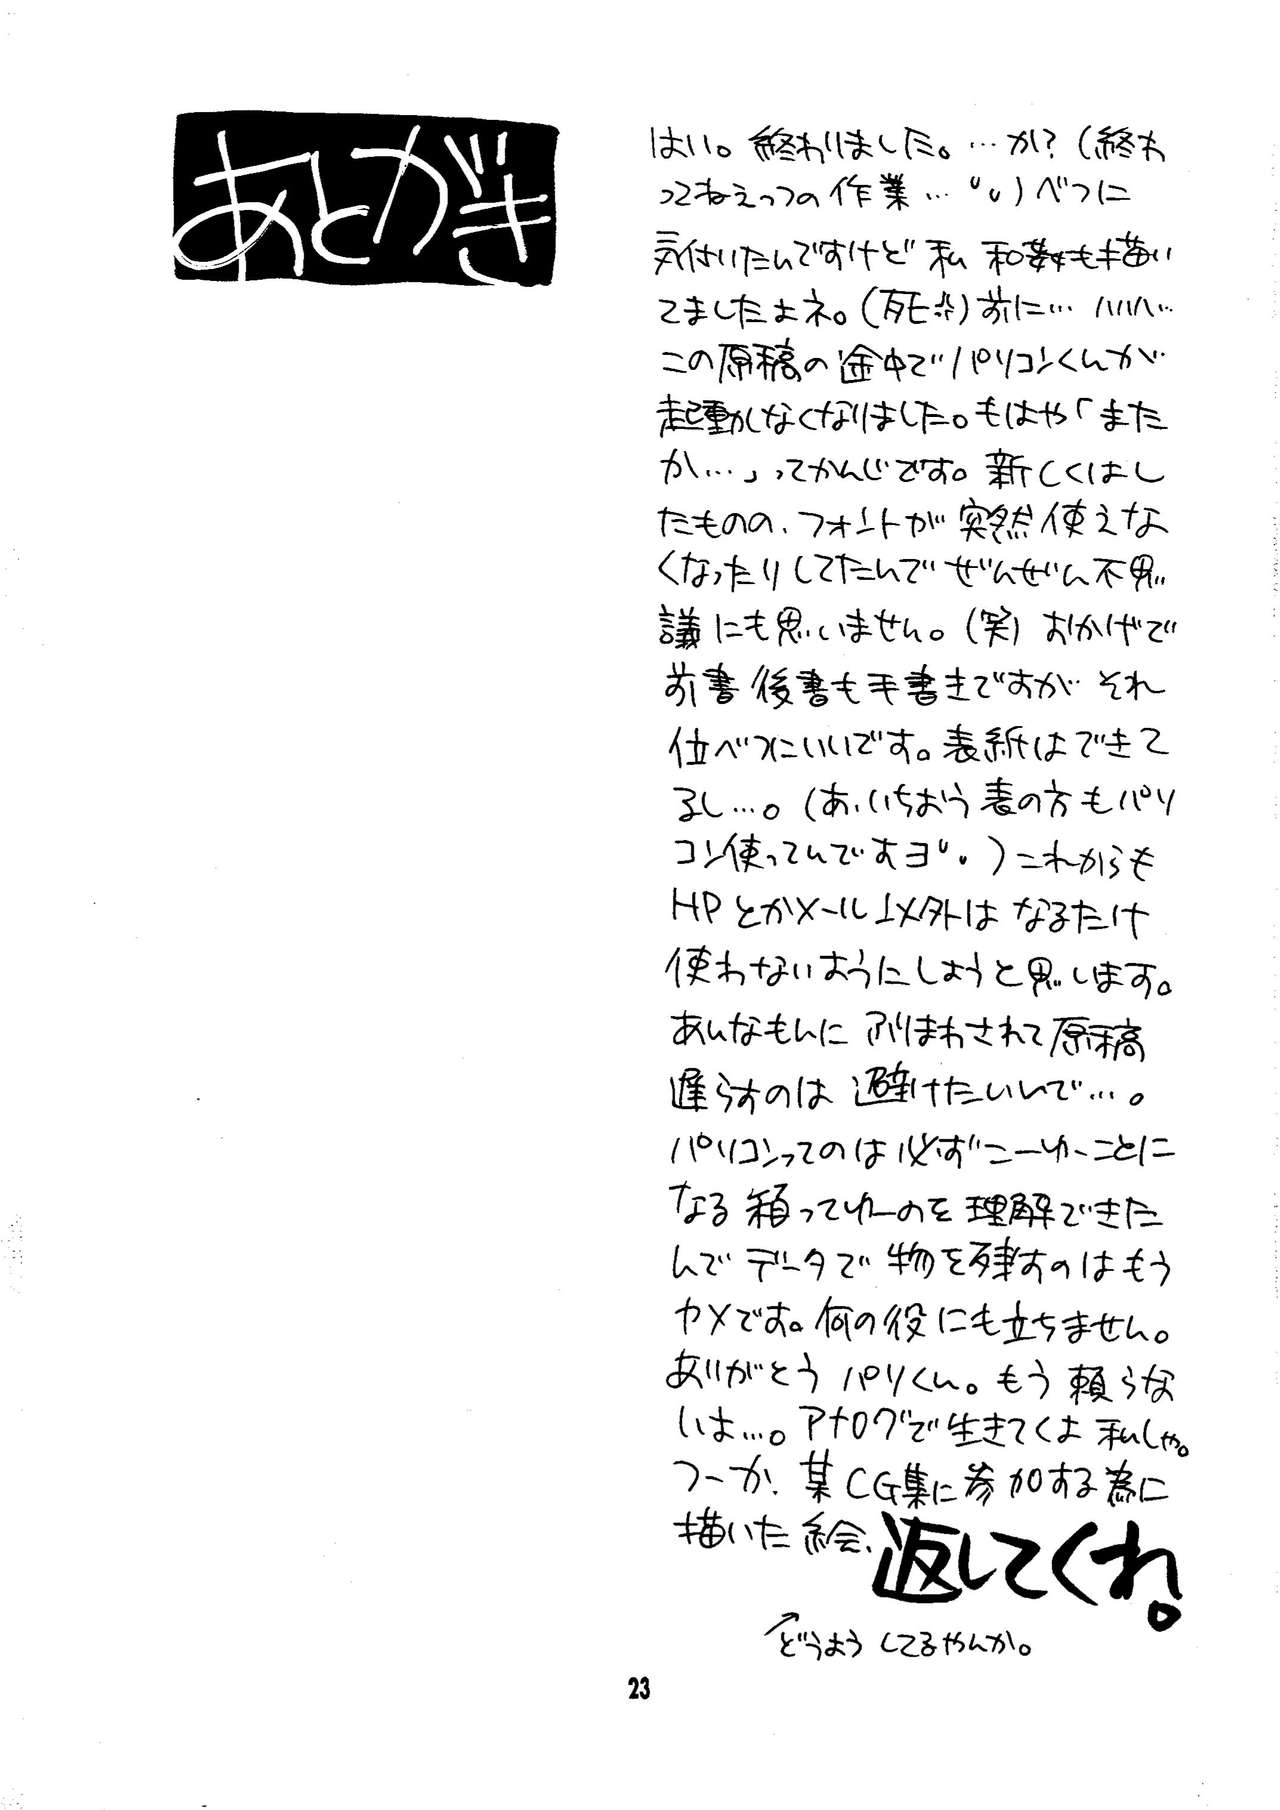 あとがき
はい。終わりました。…か?(終わ
ってねえっつの作業…)べつに
気付いたんですけど 私 和姦も描い
てましたよネ。(死)前に…ハハハ…
この原稿の途中でパソコンくんが
起動しなくなりました。もはや「また
か…」ってかんじです。新しくはし
たものの、フォントが突然使えな
くなったりしてたんでぜんぜん不思
議にも思いません。(笑)おかげで
前書後書も手書きですが それ
位べつにいいです。表紙はできて
るし…。(あ、いちおう表の方もパソ
コン使ってんですヨ)これからも
HPとかメール以外は なるたけ
使わないようにしようと思います。
あんなもんに フリまわされて原稿
遅らすのは 避けたいんで…。
パソコンってのは必ずこーゆーことに
なる箱ってゆーのを理解できた
んでデータで物を残すのはもう
ヤメです。何の役にも立ちません。
ありがとう パソくん。もう 頼らな
いよ…。アナログで生きてくよ 私しゃ。
つーか、某CG集に参加する為に
描いた絵、返してくれ。
↑どうよう してるやんか。
23